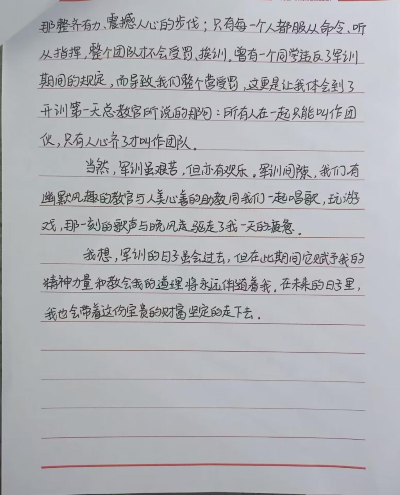 那整齐有力、震撼人心的步伐；只有每一个人都服从命令、听
从指挥，整个团队才不会受罚、挨训。曾有一个同学违反了军训
期间的规定，而导致我们整个营受罚，这更是让我体会到了
开训第一天总教官所说的那句：所有人在一起只能叫作团
伙，只有人心齐了才叫作团队。
当然，军训虽艰苦，但亦有欢乐。军训间隙，我们有
幽默风趣的教官与人美心善的助教同我们一起唱歌，玩游
戏，那一刻的歌声与晚风走驱走了我一天的疲惫。
我想，军训的日子虽会过去，但在此期间它赋予我的
精神力量和教会我的道理将永远伴随着我。在未来的日子里，
我也会带着这份宝贵的财富坚定的走下去。